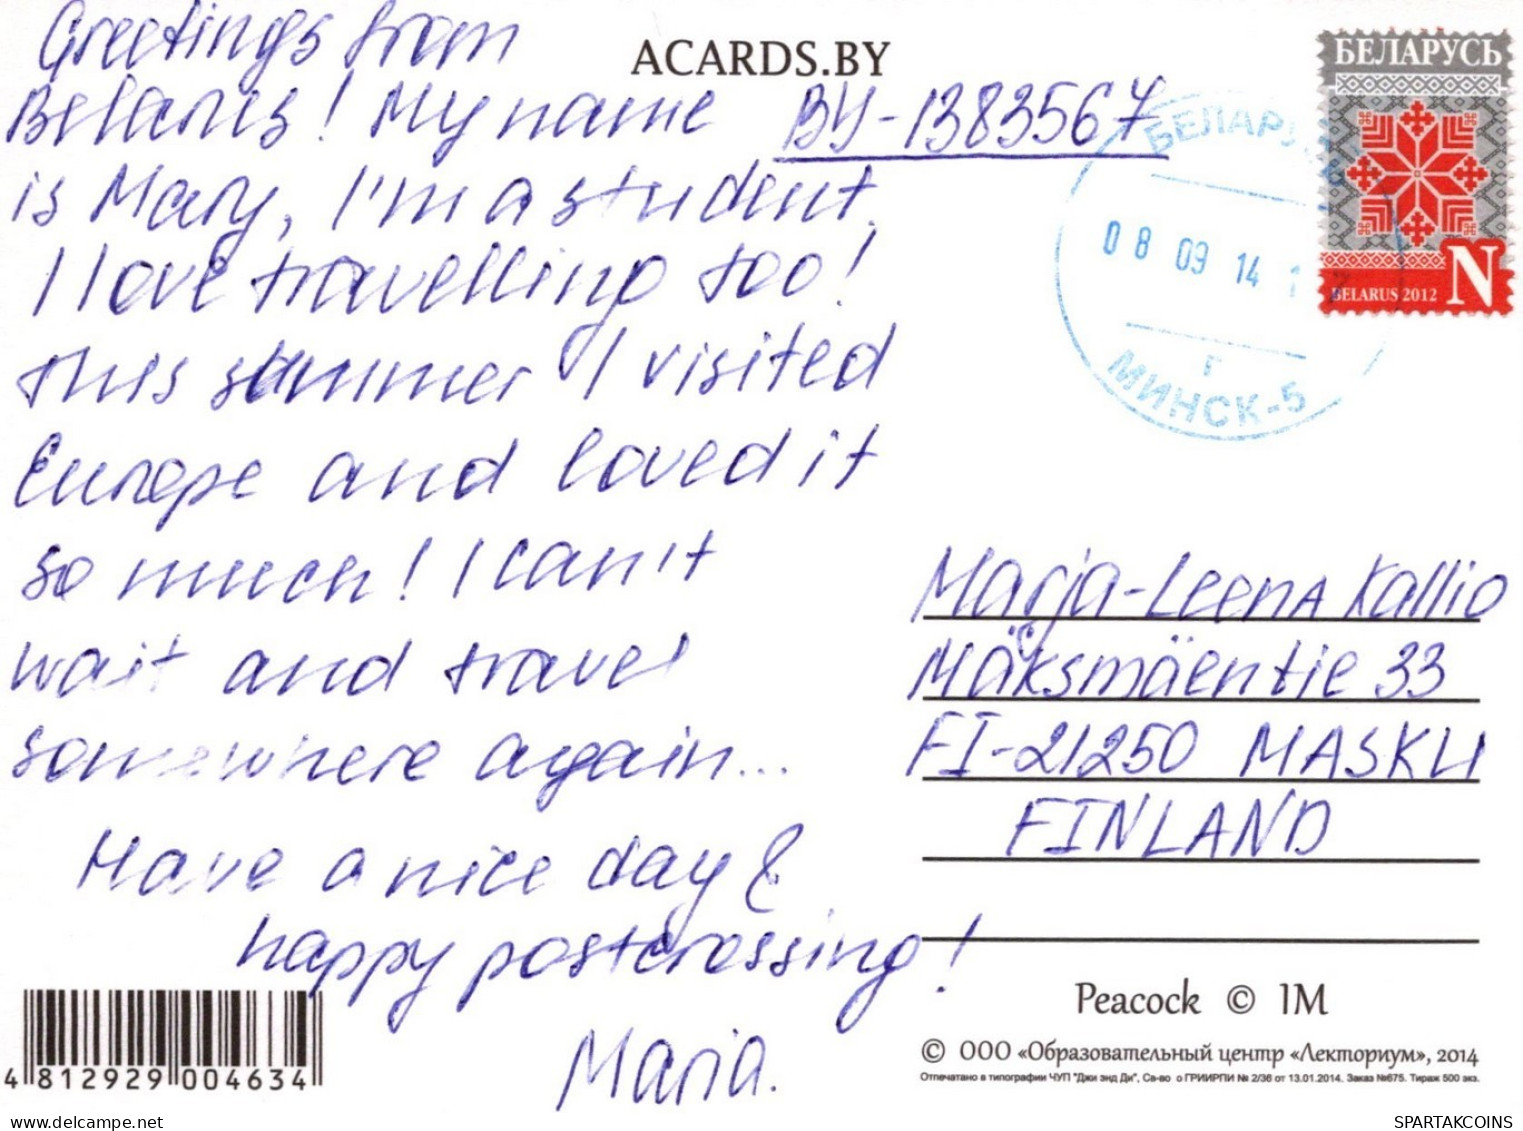 Greetings from
Belarus! My name
is Mary, I'm a student.
I love travelling too!
This summer I visited
Europe and loved it
so much! I can't
wait and travel
somewhere again...
Have a nice day &
happy postcrossing!
Maria.
ACARDS.BY
BY-1383567
БЕЛАРУСЬ
BELARUS 2012 N
БЕЛАРУСЬ
08 09 14 1
г
МИНСК-5
Marja-Leena Kallio
Mäksmäentie 33
FI-21250 MASKU
FINLAND
Peacock © IM
© ООО «Образовательный центр «Лекториум», 2014
Отпечатано в типографии ЧУП "Джи энд Ди", Св-во о ГРИИРПИ № 2/36 от 13.01.2014. Заказ №675. Тираж 500 экз.
4 812929 004634
delcampe.net
SPARTAKCOINS